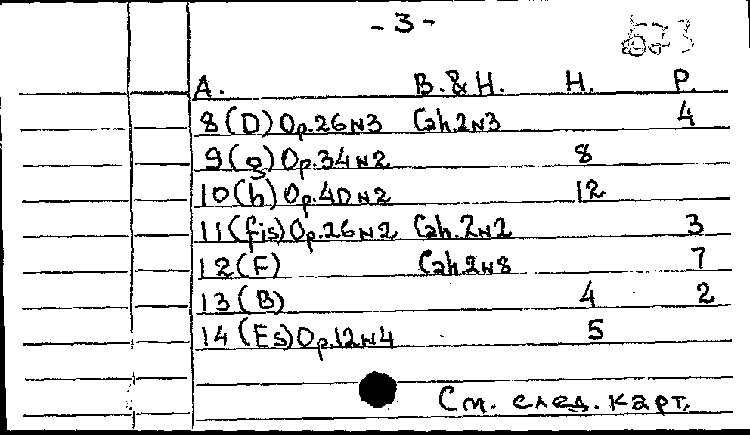 - 3 -
573
A. B. & H. H. P.
8 (D) Op. 26 N3 Cah. 2 N3 4
9 (g) Op. 34 N2 8
10 (h) Op. 40 N2 12
11 (fis) Op. 26 N2 Cah. 2 N2 3
12 (F) Cah. 2 N8 7
13 (B) 4 2
14 (Es) Op. 12 N4 5
См. след. карт.